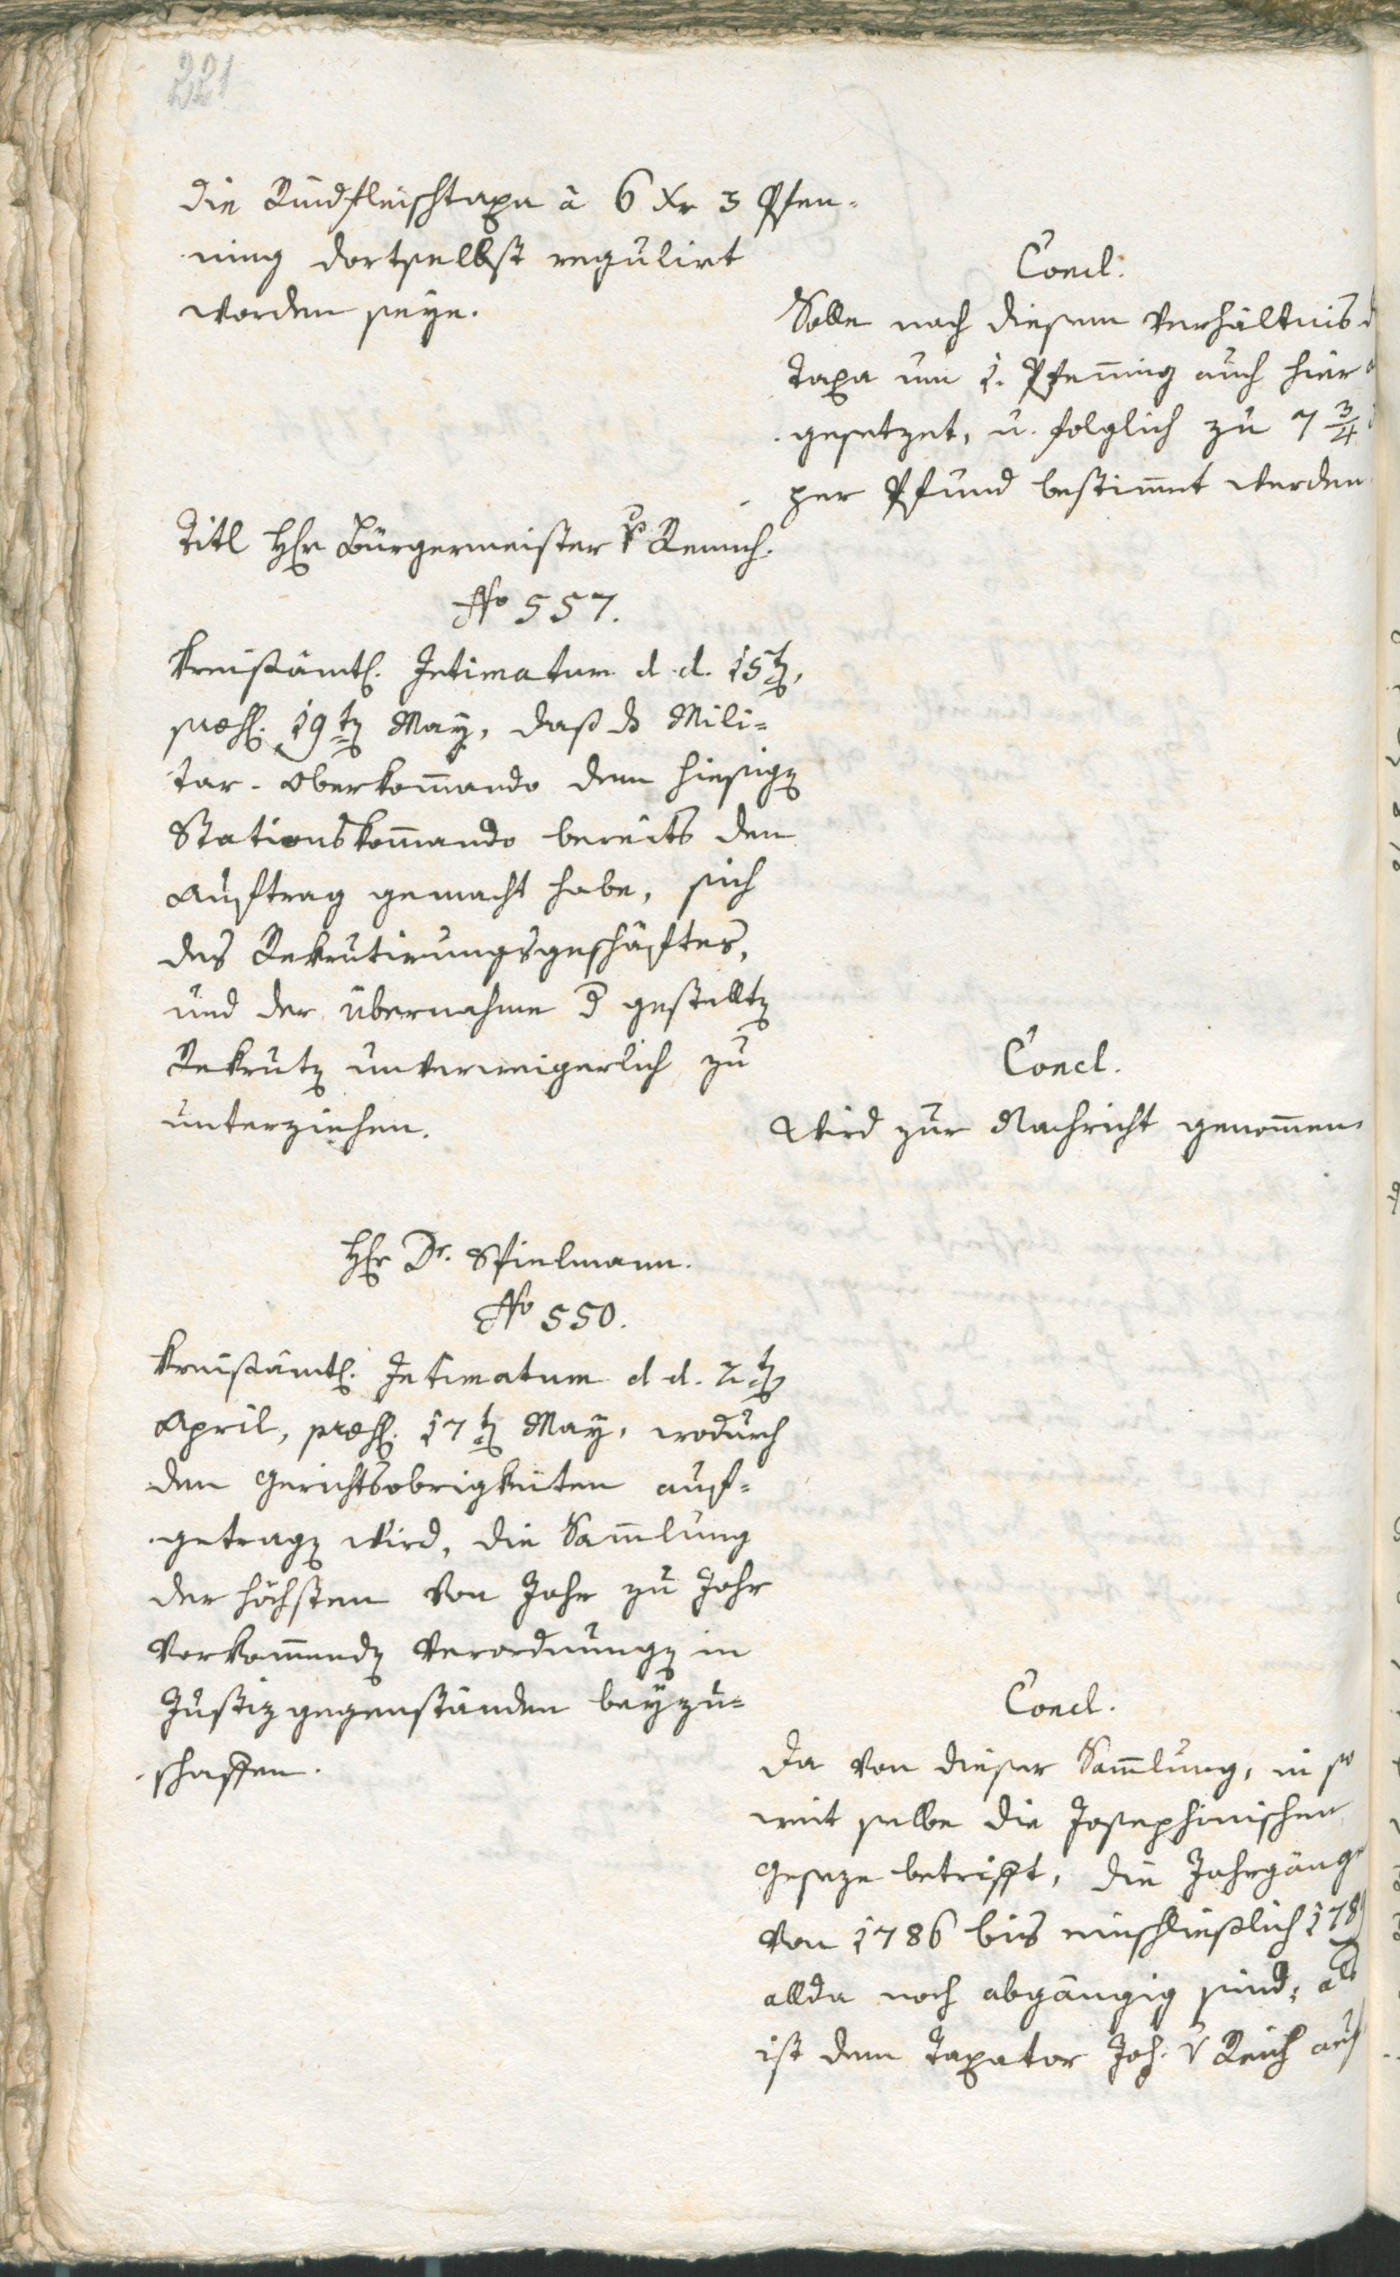 221
die Rindfleischtaxa â 6 Xr 3 Pfen-
ning dortselbst regulirt
worden seye.
Concl.
Solle nach diesem Verhältnis
Taxa um 1. Pfenning auch hier
gesetzet, u. folglich zu 7 3/4
per Pfund bestimmt werden
Titl Hr Bürgermeister
No 557.
Kreisämtl. Intimatum d. d. 15t,
præs. 19t May, daß ds Mili=
tar-Oberkommando dem hiesig
Stationskommando bereits den
Auftrag gemacht habe, sich
des Rekrutirungsgeschäftes,
und der Übernahme d gestellt
Rekrut unverweigerlich zu
unterziehen.
Concl.
Wird zur Nachricht genommen.
Hr Dr. Spielmann.
No 550.
Kreisämtl. Intimatum d. d. 2t
April, præs. 17t May, wodurch
den Gerichtsobrigkeiten auf=
getrag wird, die Sammlung
der höchsten von Jahr zu Jahr
vorkommend Verordnung in
Justizgegenständen beyzu=
schaffen.
Concl.
Da von dieser Sammlung, in so
weit selbe die Josephinischen
Geseze betrifft, die Jahrgänge
von 1786 bis einschließlich 178
allda noch abgängig sind; als
ist dem Taxator Joh. v Reich auf